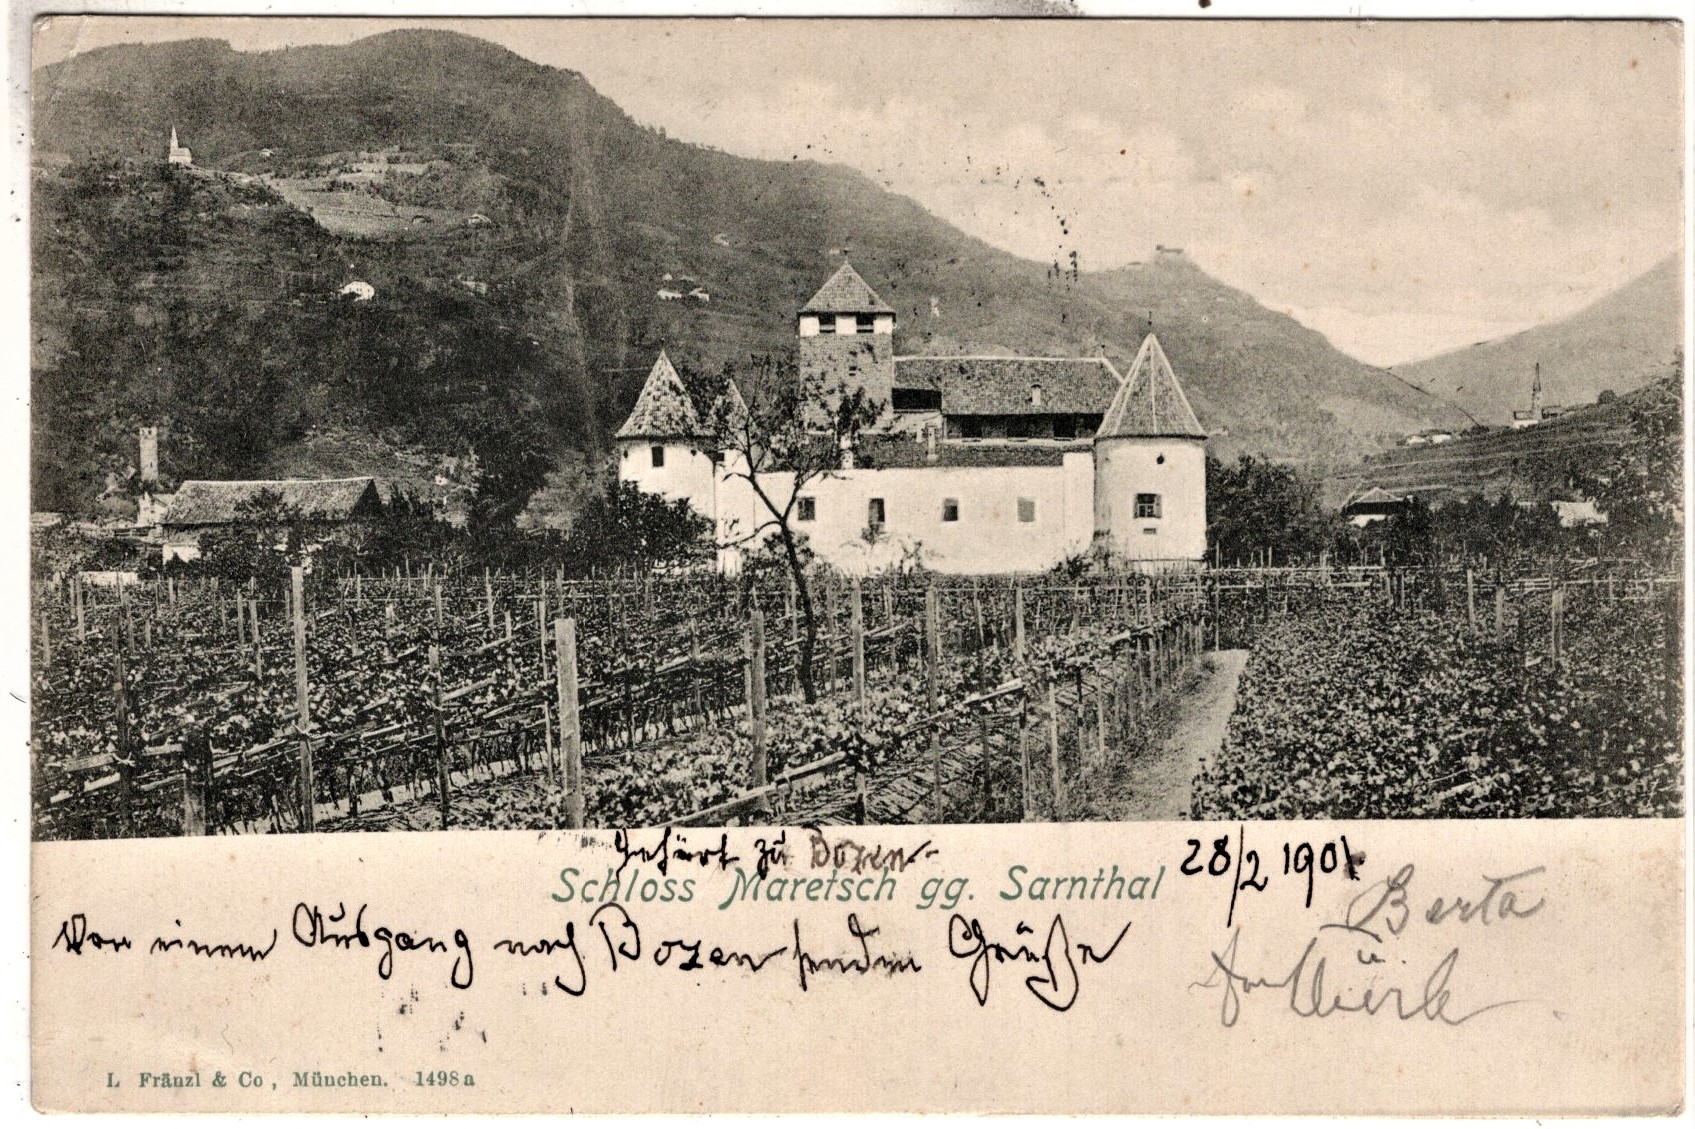 Gehört zu Bozen
28/2 1901
Schloss Maretsch gg. Sarnthal
Von einem Ausgang nach Bozen senden Grüße
Berta
u.
L Fränzl & Co, München. 1498a